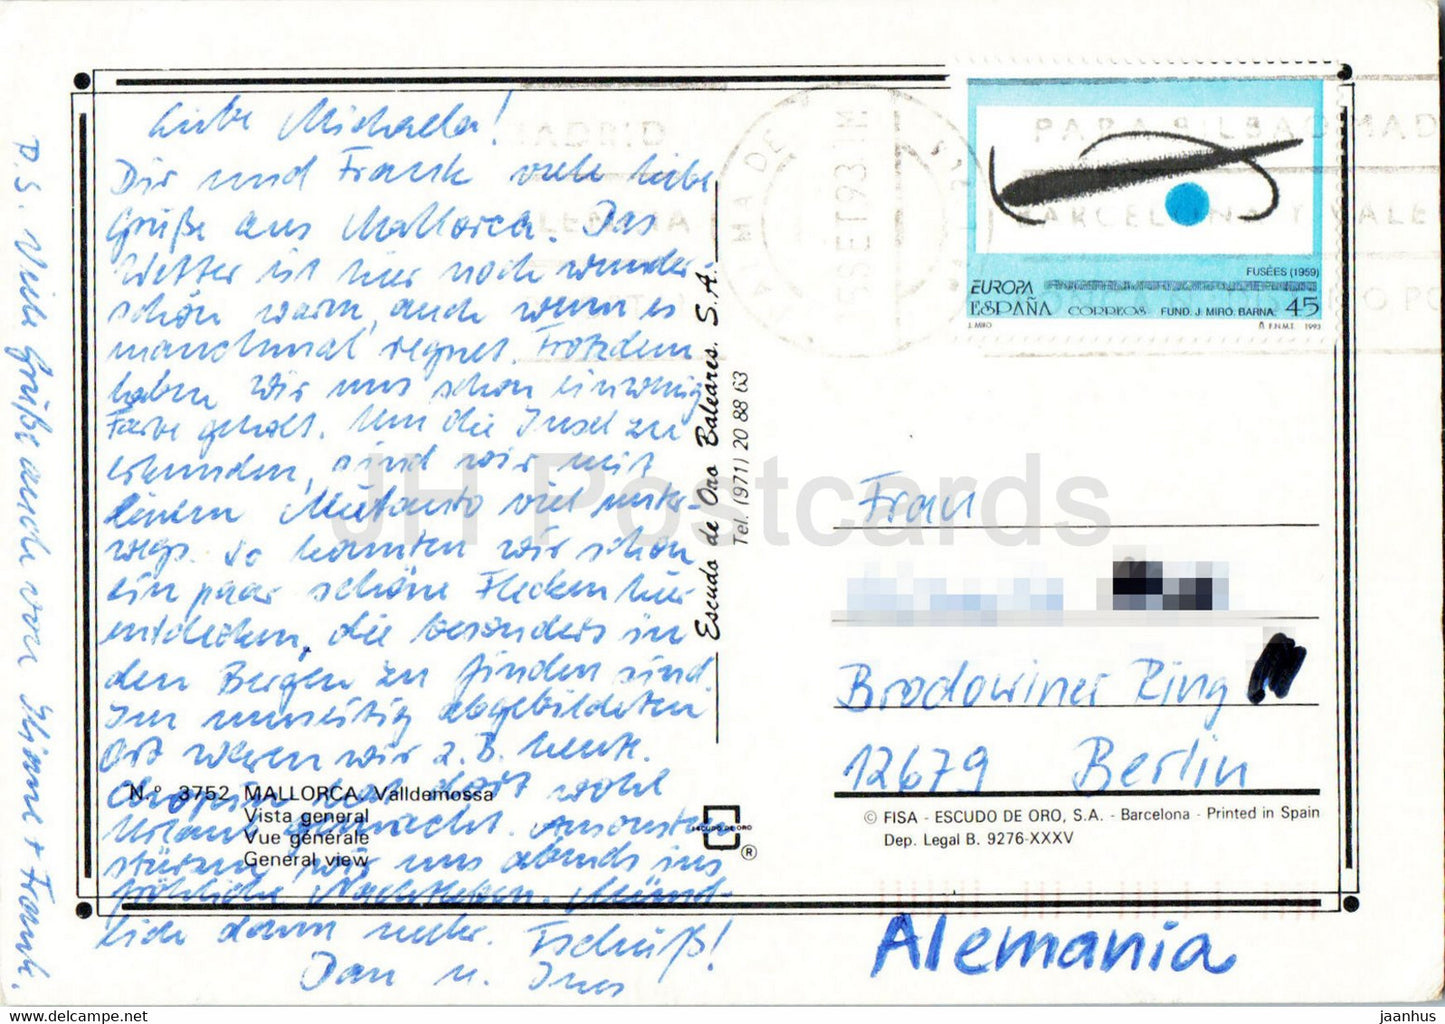 Liebe Michaela!
Dir und Frank viele liebe
Grüße aus Mallorca. Das
Wetter ist hier noch wunder-
schön warm, auch wenn es
manchmal regnet. Trotzdem
haben wir uns schon ein wenig
Farbe geholt. Um die Insel zu
erkunden, sind wir mit
einem Mietauto viel unter-
wegs. So konnten wir schon
ein paar schöne Flecken hier
entdecken, die besonders in
den Bergen zu finden sind.
Im umseitig abgebildeten
Ort waren wir z.B. heute.
Chopin hat dort wohl
Urlaub gemacht. Ansonsten
stürzen wir uns abends ins
fröhliche Nachtleben. Münd-
lich dann mehr. Tschüß!
Jan u. Ines
P.S. Viele Grüße auch von + Frank.
N.º 3752 MALLORCA. Valldemossa
Vista general
Vue générale
General view
Escudo de Oro Baleares. S.A.
Tel. (971) 20 88 63
ESCUDO DE ORO
®
MADRID
PARA BILBAO MAD
BARCELONA Y VALE
93
FUSÉES (1959)
EUROPA
ESPAÑA CORREOS FUND. J. MIRÓ. BARNA. 45
J. MIRÓ F.N.M.T. 1993
Frau
Brodowiner Ring
12679 Berlin
© FISA - ESCUDO DE ORO, S.A. - Barcelona - Printed in Spain
Dep. Legal B. 9276-XXXV
Alemania
JH Postcards
hip.postcard.com/store/jaanhus